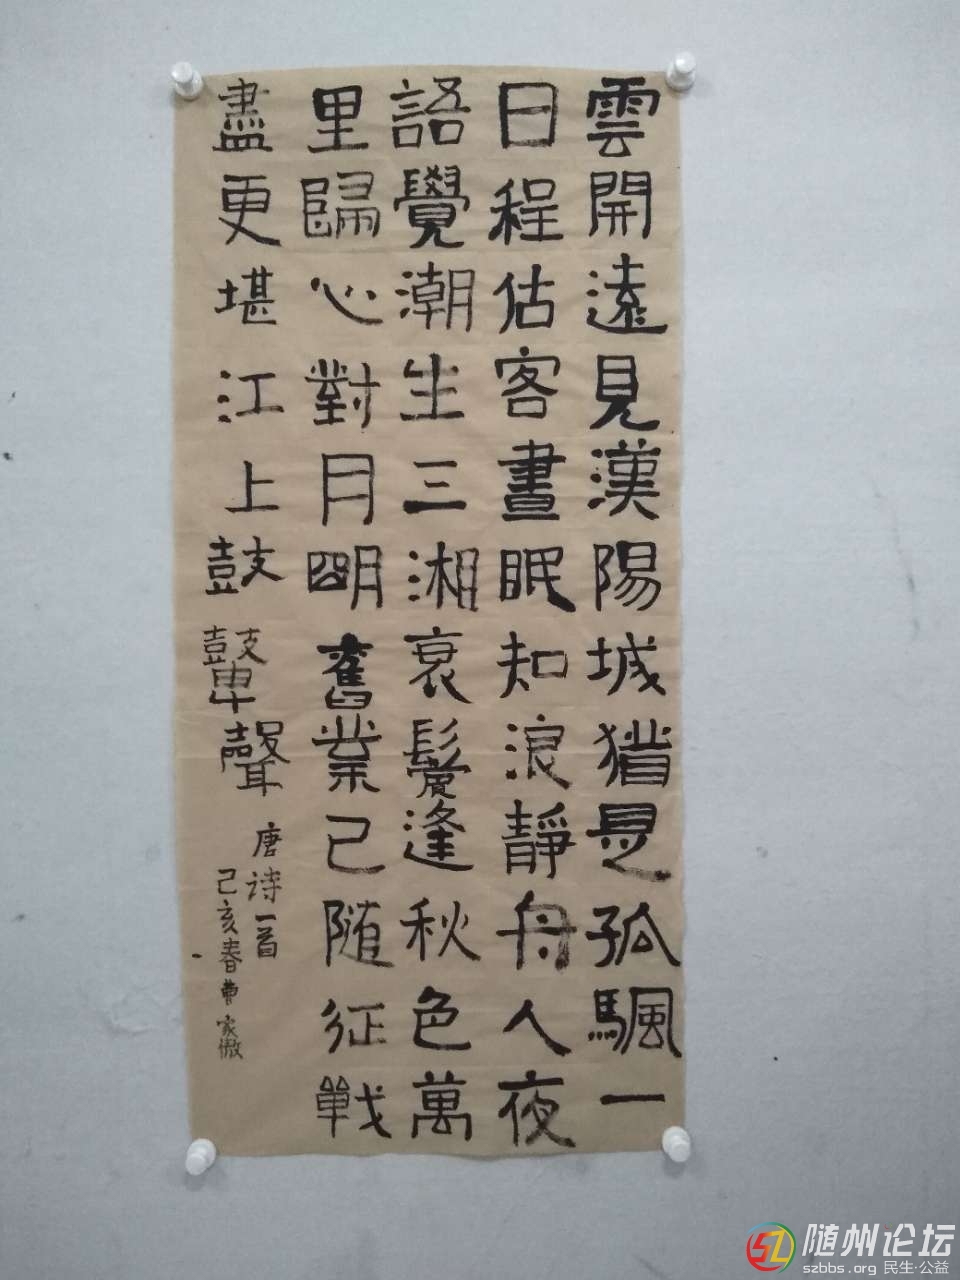 雲開遠見漢陽城猶是孤颿一
日程估客晝眠知浪靜舟人夜
語覺潮生三湘衰鬢逢秋色萬
里歸心對月明舊業已隨征戰
盡更堪江上鼓鼙聲
唐诗一首
己亥春曹家傲
随州论坛
szbbs.org 民生·公益